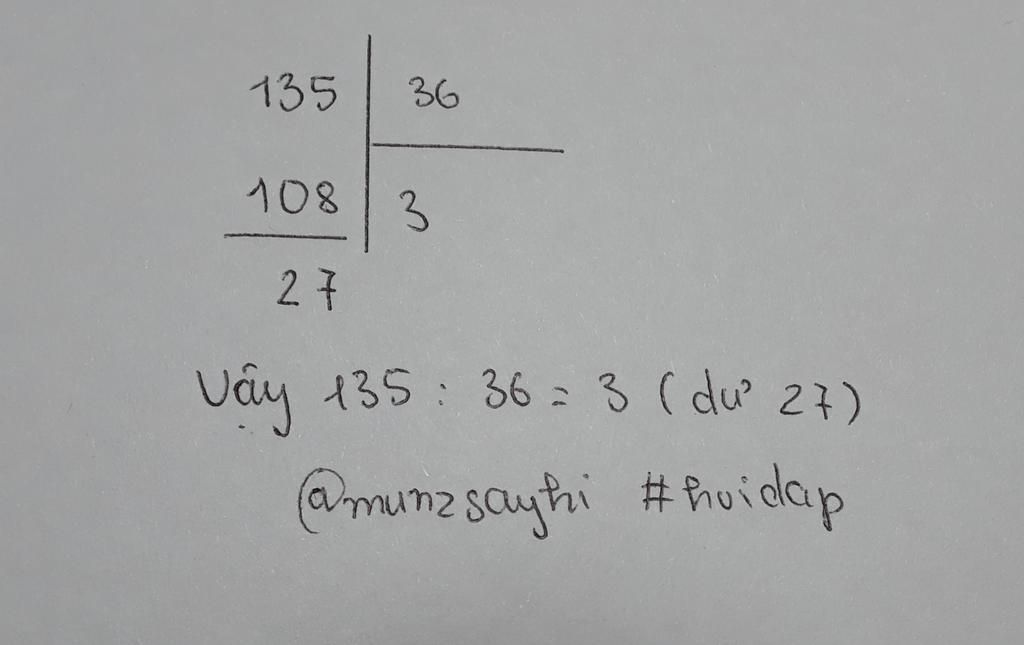 135 36
108 3
27
Vậy 135 : 36 = 3 (dư 27)
@munzsayhi #hoidap